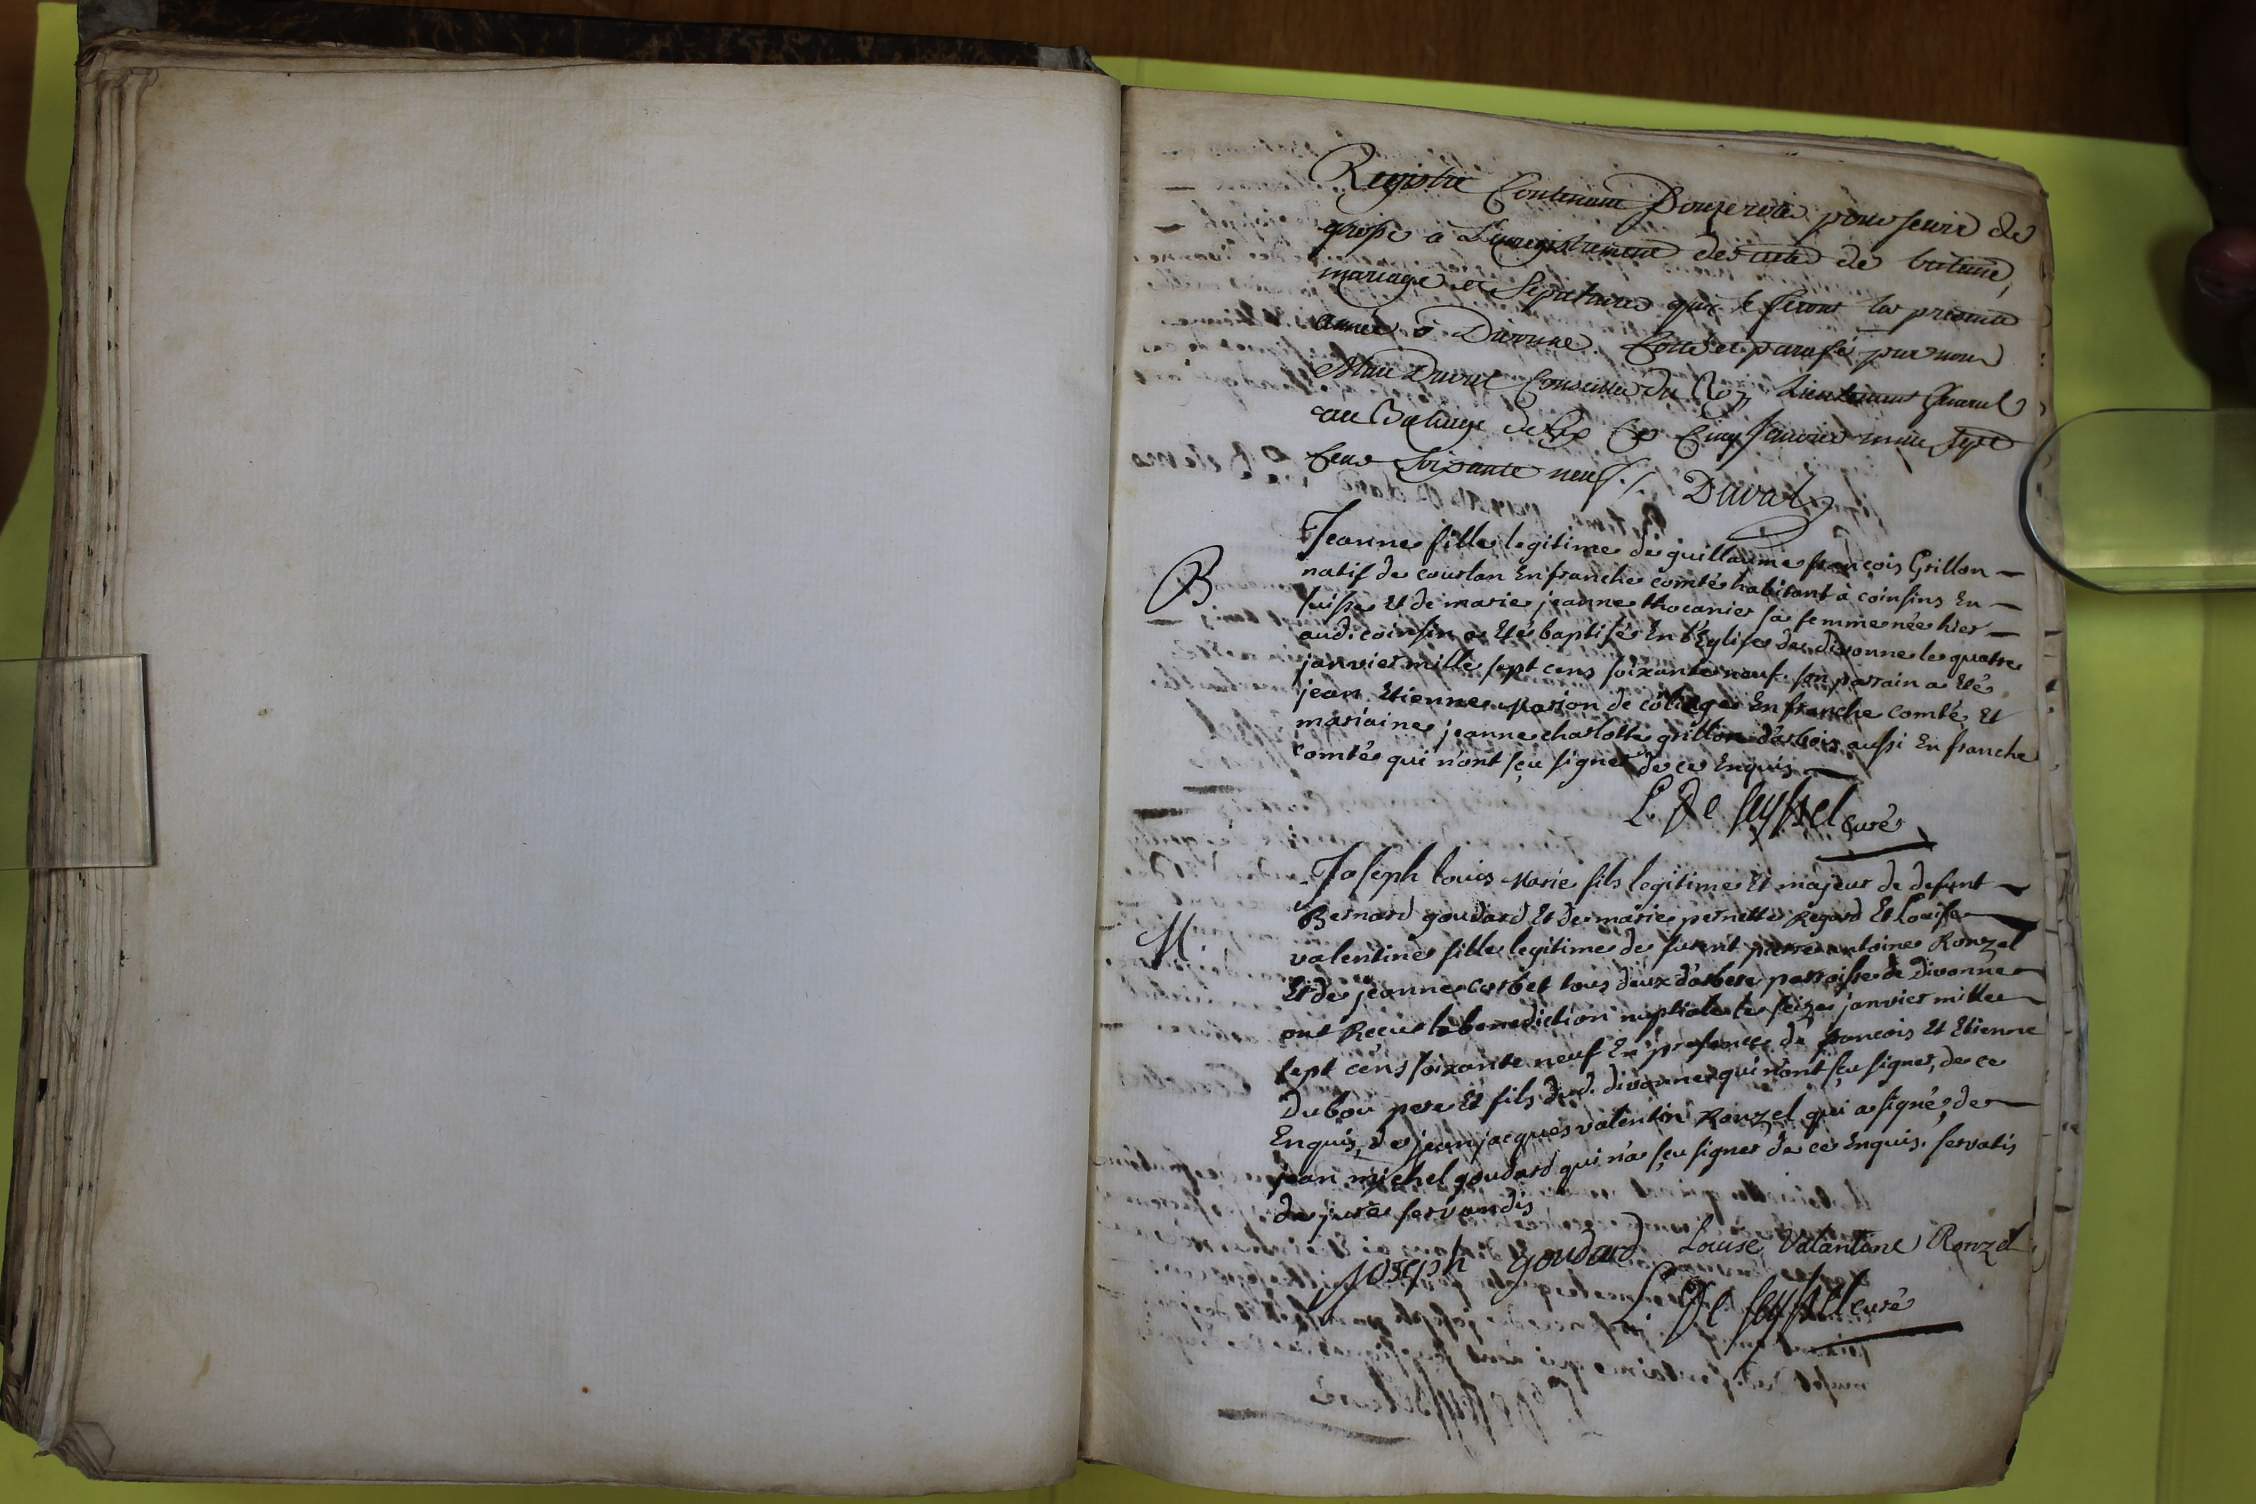 Registre Contenant Douze roles pour servir de
grosse a L'enregistrement des actes de bateme,
mariage et Sepultures qui se feront la presente
année à Divonne. Cotté et parafé par nous
Duval Conseiller du Roy Lieutenant General
au Baliage de Gex Ce Cinq Janvier mille Sept
Cens Soixante neuf./. Duval
B
Jeanne fille legitime de guillaume françois Grillon
natif de courlan En franche comté habitant à coinsins En
suisse Et de marie jeanne thocanier sa femme née hier
aud. coinsin a Eté baptisée En l'Eglise de divonne le quatre
janvier mille sept cens soixante neuf. son parrain a Eté
jean Etienne Marion de En franche comté Et
marraine jeanne charlotte grillon d'arbois aussi En franche
comté qui n'ont sçu signer de ce Enquis
L. De Seyssel curé
M.
Joseph louis Marie fils legitime Et majeur de defunt
Bernard goudard Et de marie pernette Regard Et Louise
valentine fille legitime de pierre antoine Ronzel
Et de jeanne corbet tous deux d'arbere parroisse de divonne
ont Recu la benediction nuptiale le seize janvier mille
sept cens soixante neuf En presence de françois Et Etienne
Dubou pere Et fils dud. divonne qui n'ont sçu signer, de ce
Enquis, de jean jacques valentin Ronzel qui a signé, de
jean michel goudard qui n'a sçu signer de ce Enquis. servatis
de jure servandis
Joseph goudard Louise Valantine Ronzel
L. De Seyssel curé